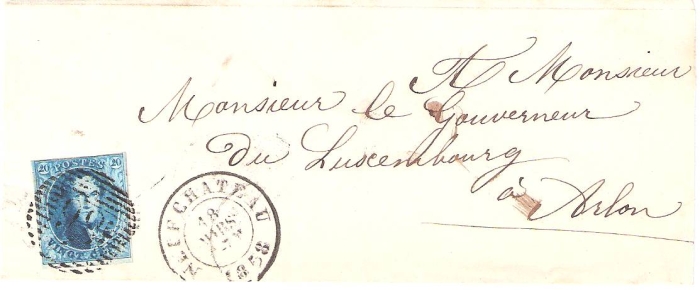 A Monsieur
Monsieur le Gouverneur
du Luxembourg
à Arlon
20 POSTES 20
VINGT
NEUFCHATEAU
18
MARS
1858